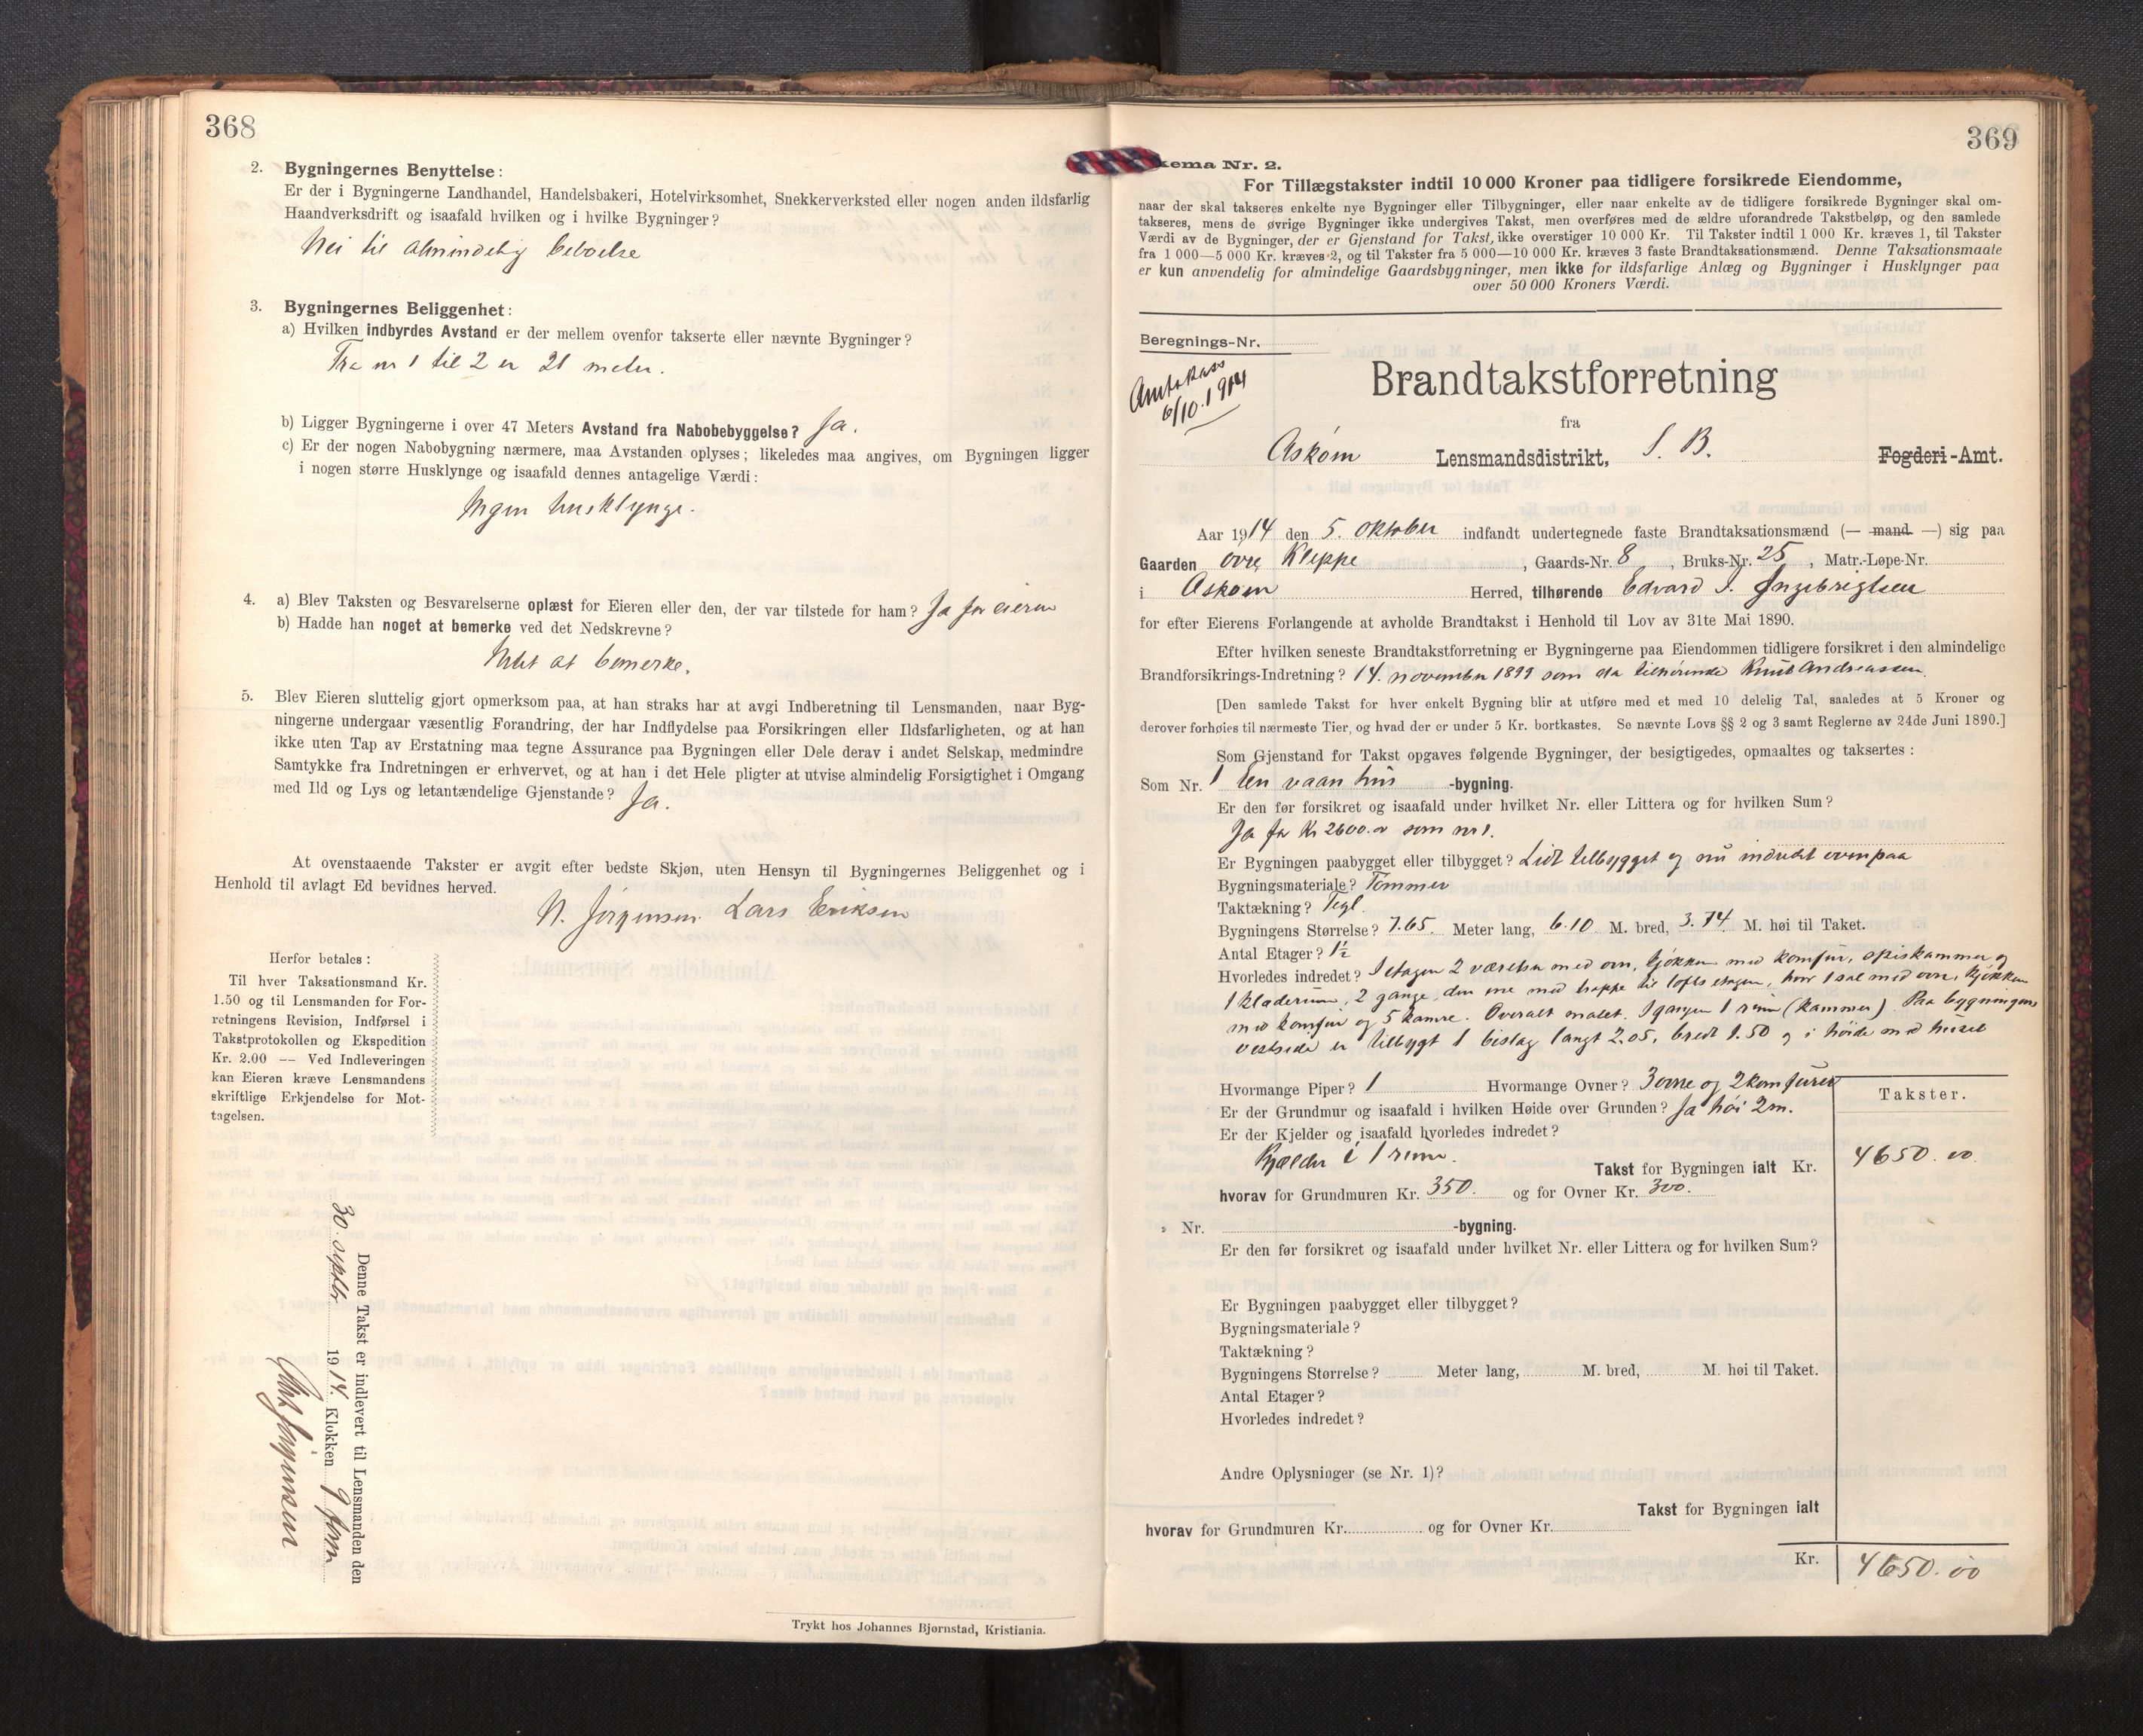 368
2. Bygningernes Benyttelse:
Er der i Bygningerne Landhandel, Handelsbakeri, Hotelvirksomhet, Snekkerverksted eller nogen anden ildsfarlig
Haandverksdrift og isaafald hvilken og i hvilke Bygninger?
Nei til almindelig beboelse
3. Bygningernes Beliggenhet:
a) Hvilken indbyrdes Avstand er der mellem ovenfor takserte eller nævnte Bygninger?
Fra nr 1 til 2 er 21 meter.
b) Ligger Bygningerne i over 47 Meters Avstand fra Nabobebyggelse? Ja.
c) Er der nogen Nabobygning nærmere, maa Avstanden oplyses; likeledes maa angives, om Bygningen ligger
i nogen større Husklynge og isaafald dennes antagelige Værdi:
Ingen husklynge.
4. a) Blev Taksten og Besvarelserne oplæst for Eieren eller den, der var tilstede for ham? Ja for eieren
b) Hadde han noget at bemerke ved det Nedskrevne?
Intet at bemerke.
5. Blev Eieren sluttelig gjort opmerksom paa, at han straks har at avgi Indberetning til Lensmanden, naar Byg-
ningerne undergaar væsentlig Forandring, der har Indflydelse paa Forsikringen eller Ildsfarligheten, og at han
ikke uten Tap av Erstatning maa tegne Assurance paa Bygningen eller Dele derav i andet Selskap, medmindre
Samtykke fra Indretningen er erhvervet, og at han i det Hele pligter at utvise almindelig Forsigtighet i Omgang
med Ild og Lys og letantændelige Gjenstande? Ja.
At ovenstaaende Takster er avgit efter bedste Skjøn, uten Hensyn til Bygningernes Beliggenhet og i
Henhold til avlagt Ed bevidnes herved.
N. Jørgensen Lars Eriksen
Herfor betales:
Til hver Taksationsmand Kr.
1.50 og til Lensmanden for For-
retningens Revision, Indførsel i
Takstprotokollen og Ekspedition
Kr. 2.00 — Ved Indleveringen
kan Eieren kræve Lensmandens
skriftlige Erkjendelse for Mot-
tagelsen.
Denne Takst er indlevert til Lensmanden den
30 septbr 1914. Klokken 9 fm
Jørgensen
Trykt hos Johannes Bjørnstad, Kristiania.
369
kema Nr. 2.
For Tillægstakster indtil 10 000 Kroner paa tidligere forsikrede Eiendomme,
naar der skal takseres enkelte nye Bygninger eller Tilbygninger, eller naar enkelte av de tidligere forsikrede Bygninger skal om-
takseres, mens de øvrige Bygninger ikke undergives Takst, men overføres med de ældre uforandrede Takstbeløp, og den samlede
Værdi av de Bygninger, der er Gjenstand for Takst, ikke overstiger 10 000 Kr. Til Takster indtil 1 000 Kr. kræves 1, til Takster
fra 1 000—5 000 Kr. kræves 2, og til Takster fra 5 000—10 000 Kr. kræves 3 faste Brandtaksationsmænd. Denne Taksationsmaate
er kun anvendelig for almindelige Gaardsbygninger, men ikke for ildsfarlige Anlæg og Bygninger i Husklynger paa
over 50 000 Kroners Værdi.
Beregnings-Nr.
6/10. 1914
Brandtakstforretning
fra
Askøen Lensmandsdistrikt, S. B. Fogderi-Amt.
Aar 1914 den 5. oktober indfandt undertegnede faste Brandtaksationsmænd (— mand —) sig paa
Gaarden øvre Kleppe, Gaards-Nr. 8, Bruks-Nr. 25, Matr.-Løpe-Nr.
i Askøen Herred, tilhørende Edvard I. Ingebrigtsen
for efter Eierens Forlangende at avholde Brandtakst i Henhold til Lov av 31te Mai 1890.
Efter hvilken seneste Brandtakstforretning er Bygningerne paa Eiendommen tidligere forsikret i den almindelige
Brandforsikrings-Indretning? 14. november 1899 som da tilhørende Knut Andreassen.
[Den samlede Takst for hver enkelt Bygning blir at utføre med et med 10 delelig Tal, saaledes at 5 Kroner og
derover forhøies til nærmeste Tier, og hvad der er under 5 Kr. bortkastes. Se nævnte Lovs §§ 2 og 3 samt Reglerne av 24de Juni 1890.]
Som Gjenstand for Takst opgaves følgende Bygninger, der besigtigedes, opmaaltes og taksertes:
Som Nr. 1 En vaanhus -bygning.
Er den før forsikret og isaafald under hvilket Nr. eller Littera og for hvilken Sum?
Ja for Kr 2600.00 som nr 1.
Er Bygningen paabygget eller tilbygget? Lidt tilbygget og nu indredet ovenpaa
Bygningsmateriale? Tømmer
Taktækning? Tegl.
Bygningens Størrelse? 7.65. Meter lang, 6.10 M. bred, 3.74 M. høi til Taket.
Antal Etager? 1½
Hvorledes indredet? I etagen 2 værelser med ovn, kjøkken med komfur, spiskammer og
1 klæderum, 2 gange, den ene med trappe til lofts etagen, hvor 1 sal med ovn, kjøkken
med komfur og 5 kamre. Overalt malet. I gangen 1 rum (kammer). Paa bygningens
vestside er tilbygt 1 bislag langt 2.05, bredt 1.50 og i høide med huset
Hvormange Piper? 1 Hvormange Ovner? 3 ovne og 2 komfurer
Er der Grundmur og isaafald i hvilken Høide over Grunden? Ja høi 2m.
Er der Kjelder og isaafald hvorledes indredet?
Kjælder i 1 rum.
Takster.
Takst for Bygningen ialt Kr. 4650.00
hvorav for Grundmuren Kr. 350. og for Ovner Kr. 300.
" Nr. -bygning.
Er den før forsikret og isaafald under hvilket Nr. eller Littera og for hvilken Sum?
Er Bygningen paabygget eller tilbygget?
Bygningsmateriale?
Taktækning?
Bygningens Størrelse? Meter lang, M. bred, M. høi til Taket.
Antal Etager?
Hvorledes indredet?
Andre Oplysninger (se Nr. 1)?
Takst for Bygningen ialt
hvorav for Grundmuren Kr. og for Ovner Kr.
Kr. 4650.00